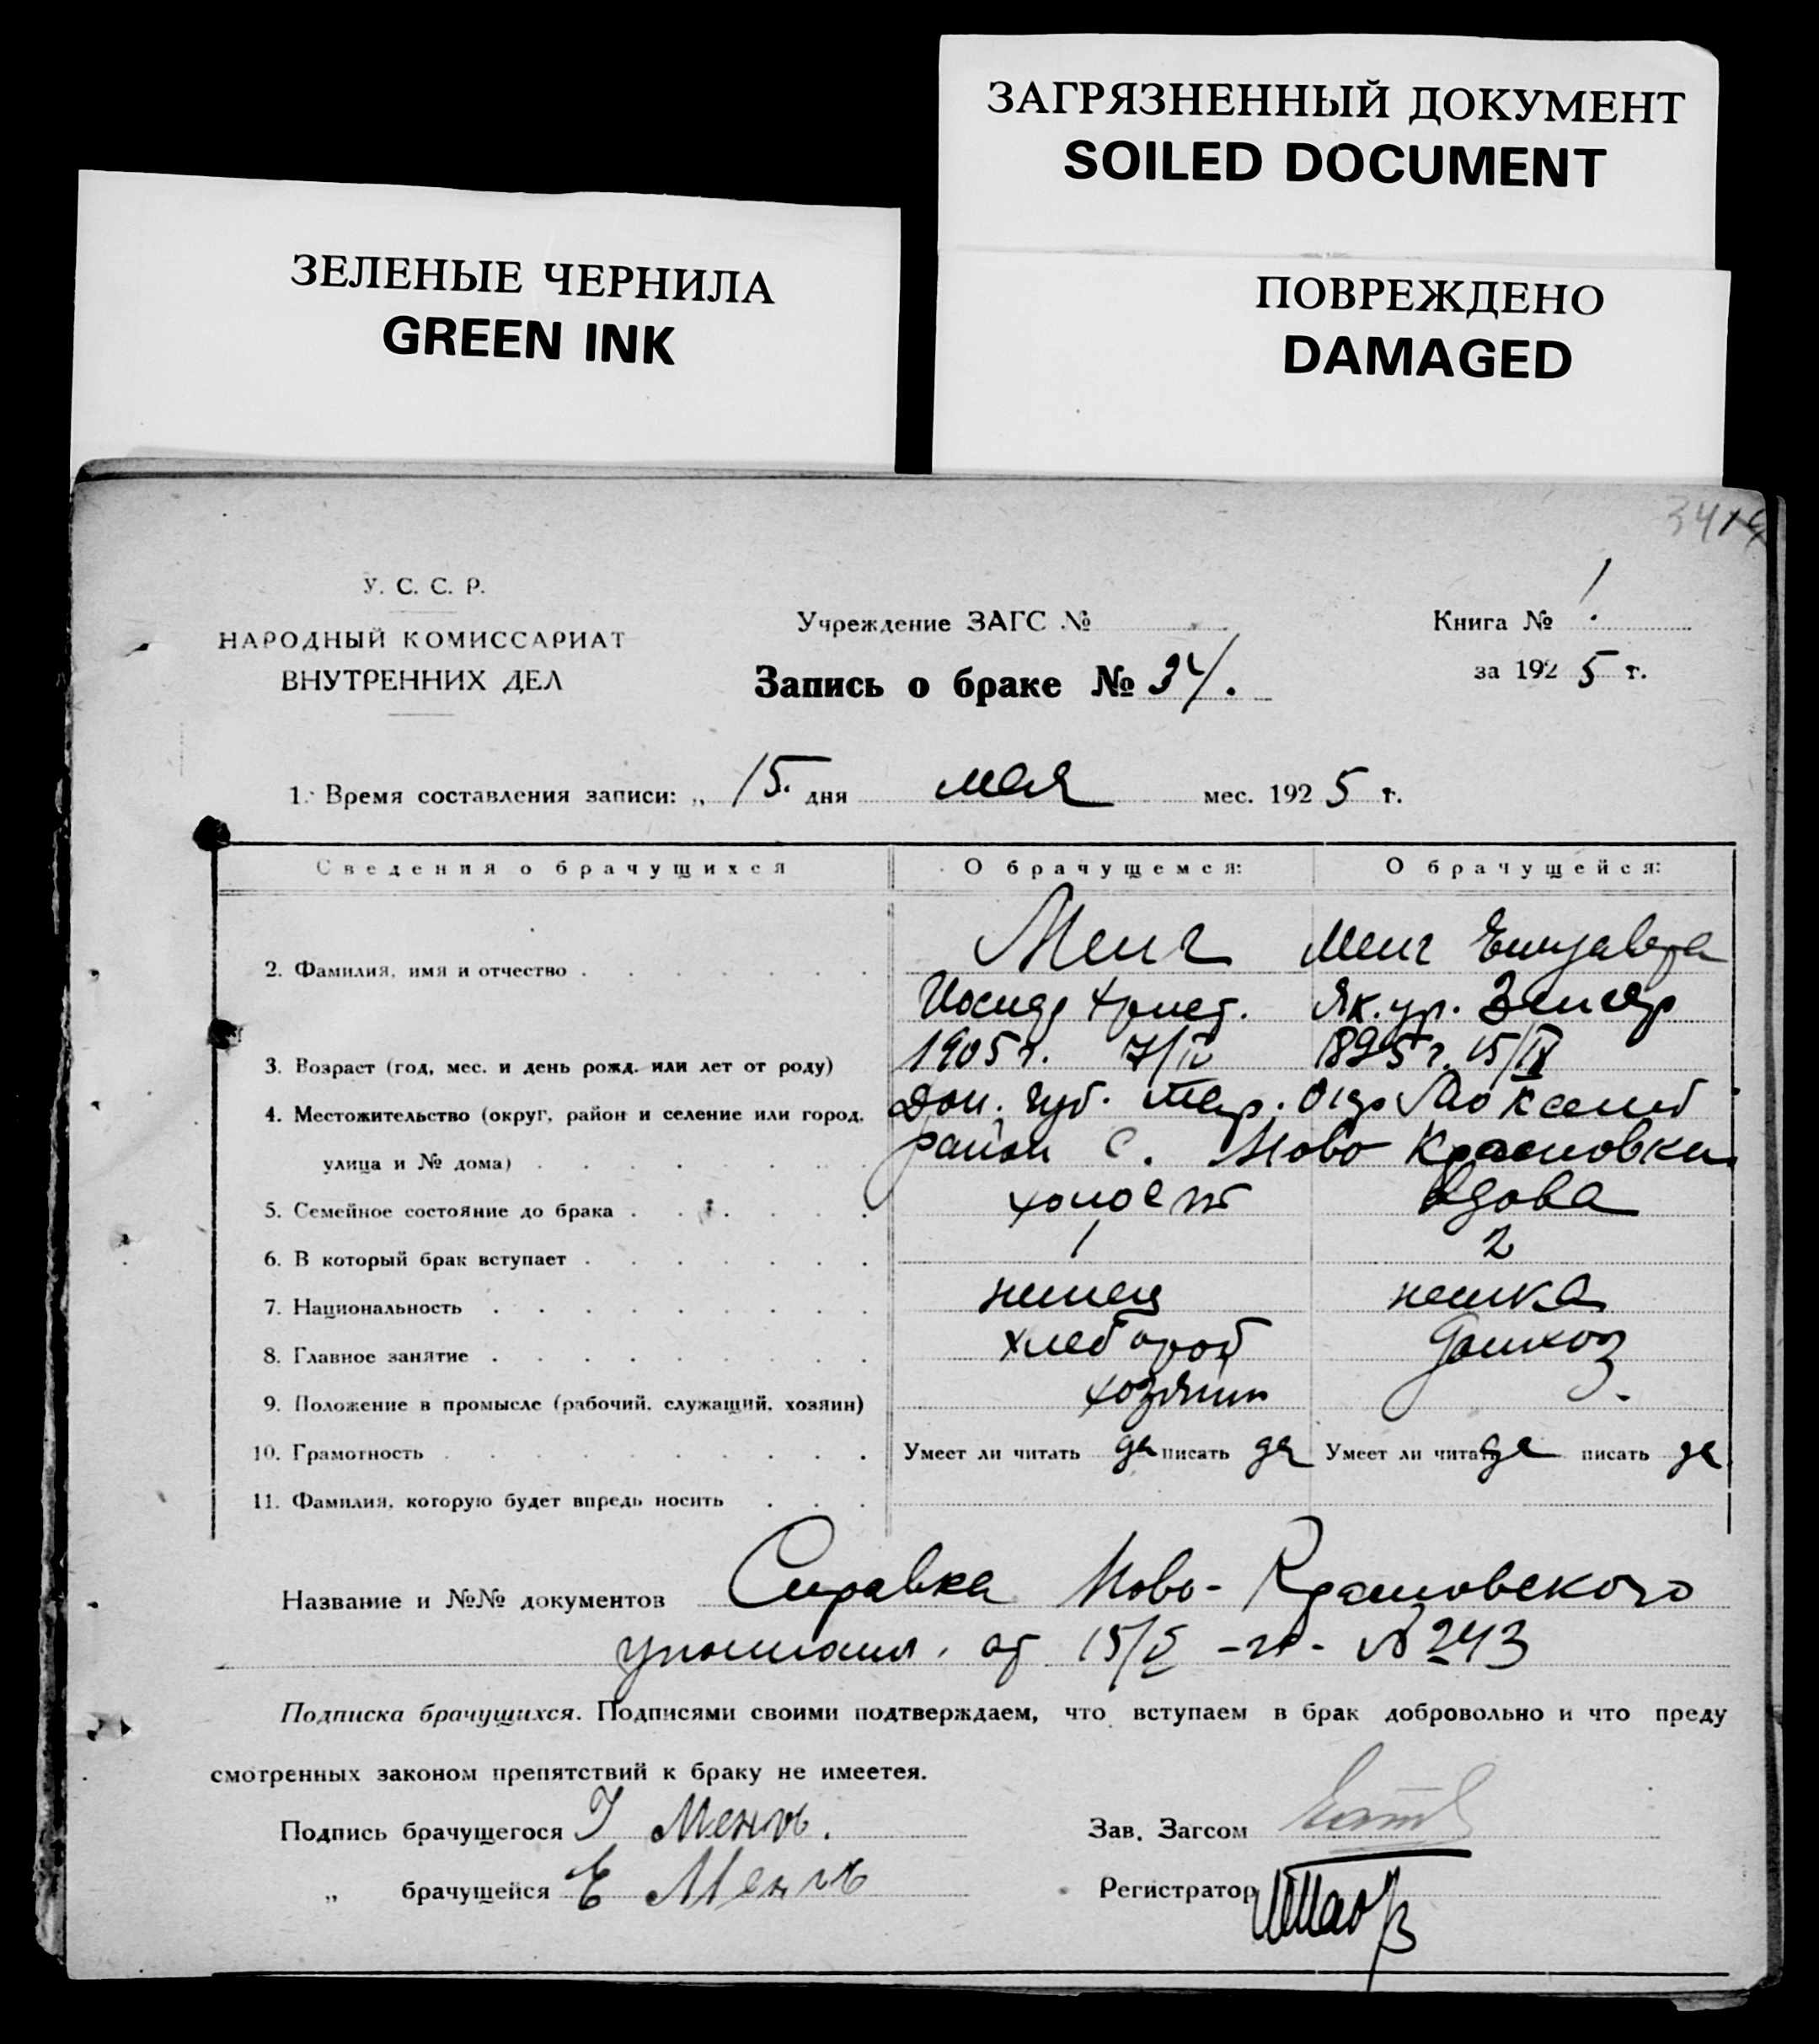 ЗАГРЯЗНЕННЫЙ ДОКУМЕНТ
SOILED DOCUMENT
ЗЕЛЕНЫЕ ЧЕРНИЛА
GREEN INK
ПОВРЕЖДЕНО
DAMAGED
34
У. С. С. Р.
НАРОДНЫЙ КОМИССАРИАТ
ВНУТРЕННИХ ДЕЛ
Учреждение ЗАГС №
Запись о браке № 34.
Книга № 1.
за 1925 г.
1. Время составления записи: „ 15. дня мая мес. 1925 г.
Сведения о брачущихся О брачущемся: О брачущейся:
2. Фамилия, имя и отчество Менг Менг Елизавета
Иосиф Христ. Як. ур. Зенгер
3. Возраст (год, мес. и день рожд. или лет от роду) 1905 г. 7/IV 1895 г. 15/IX
4. Местожительство (округ, район и селение или город, Дон. губ. Мар. Окр
улица и № дома) район с. Ново Красновки
5. Семейное состояние до брака холост вдова
6. В который брак вступает 1 2
7. Национальность немец немка
8. Главное занятие хлебороб домхоз
9. Положение в промысле (рабочий, служащий, хозяин) хозяин
10. Грамотность Умеет ли читать да писать да Умеет ли читать да писать да
11. Фамилия, которую будет впредь носить
Название и №№ документов Справка Ново-Красновского
от 15/V - № 243
Подписка брачущихся. Подписями своими подтверждаем, что вступаем в брак добровольно и что преду
смотренных законом препятствий к браку не имеетея.
Подпись брачущегося І Менгъ.
Зав. Загсом
„ брачущейся Е Менгъ
Регистратор